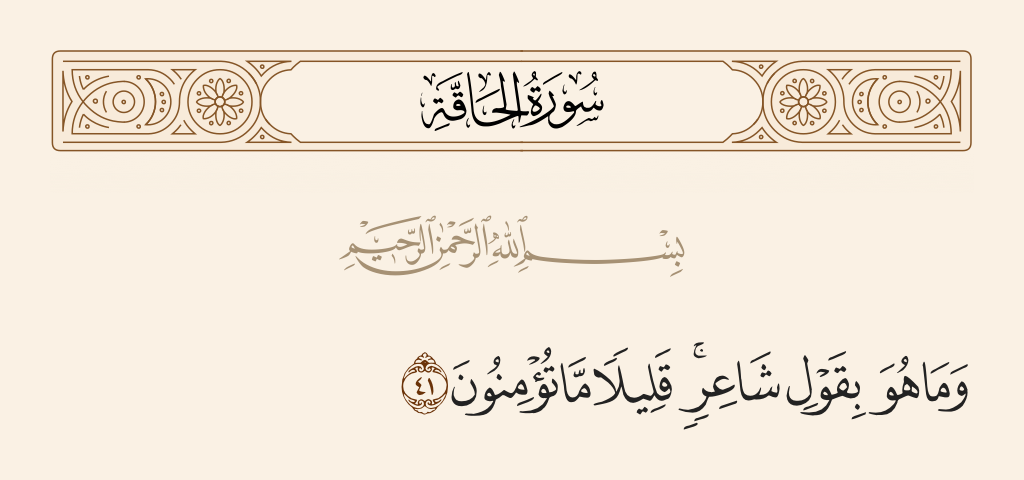 سُورَةُ الحَاقَّةِ
بِسْمِ ٱللَّهِ ٱلرَّحْمَٰنِ ٱلرَّحِيمِ
وَمَا هُوَ بِقَوْلِ شَاعِرٍ ۚ قَلِيلًا مَّا تُؤْمِنُونَ ٤١